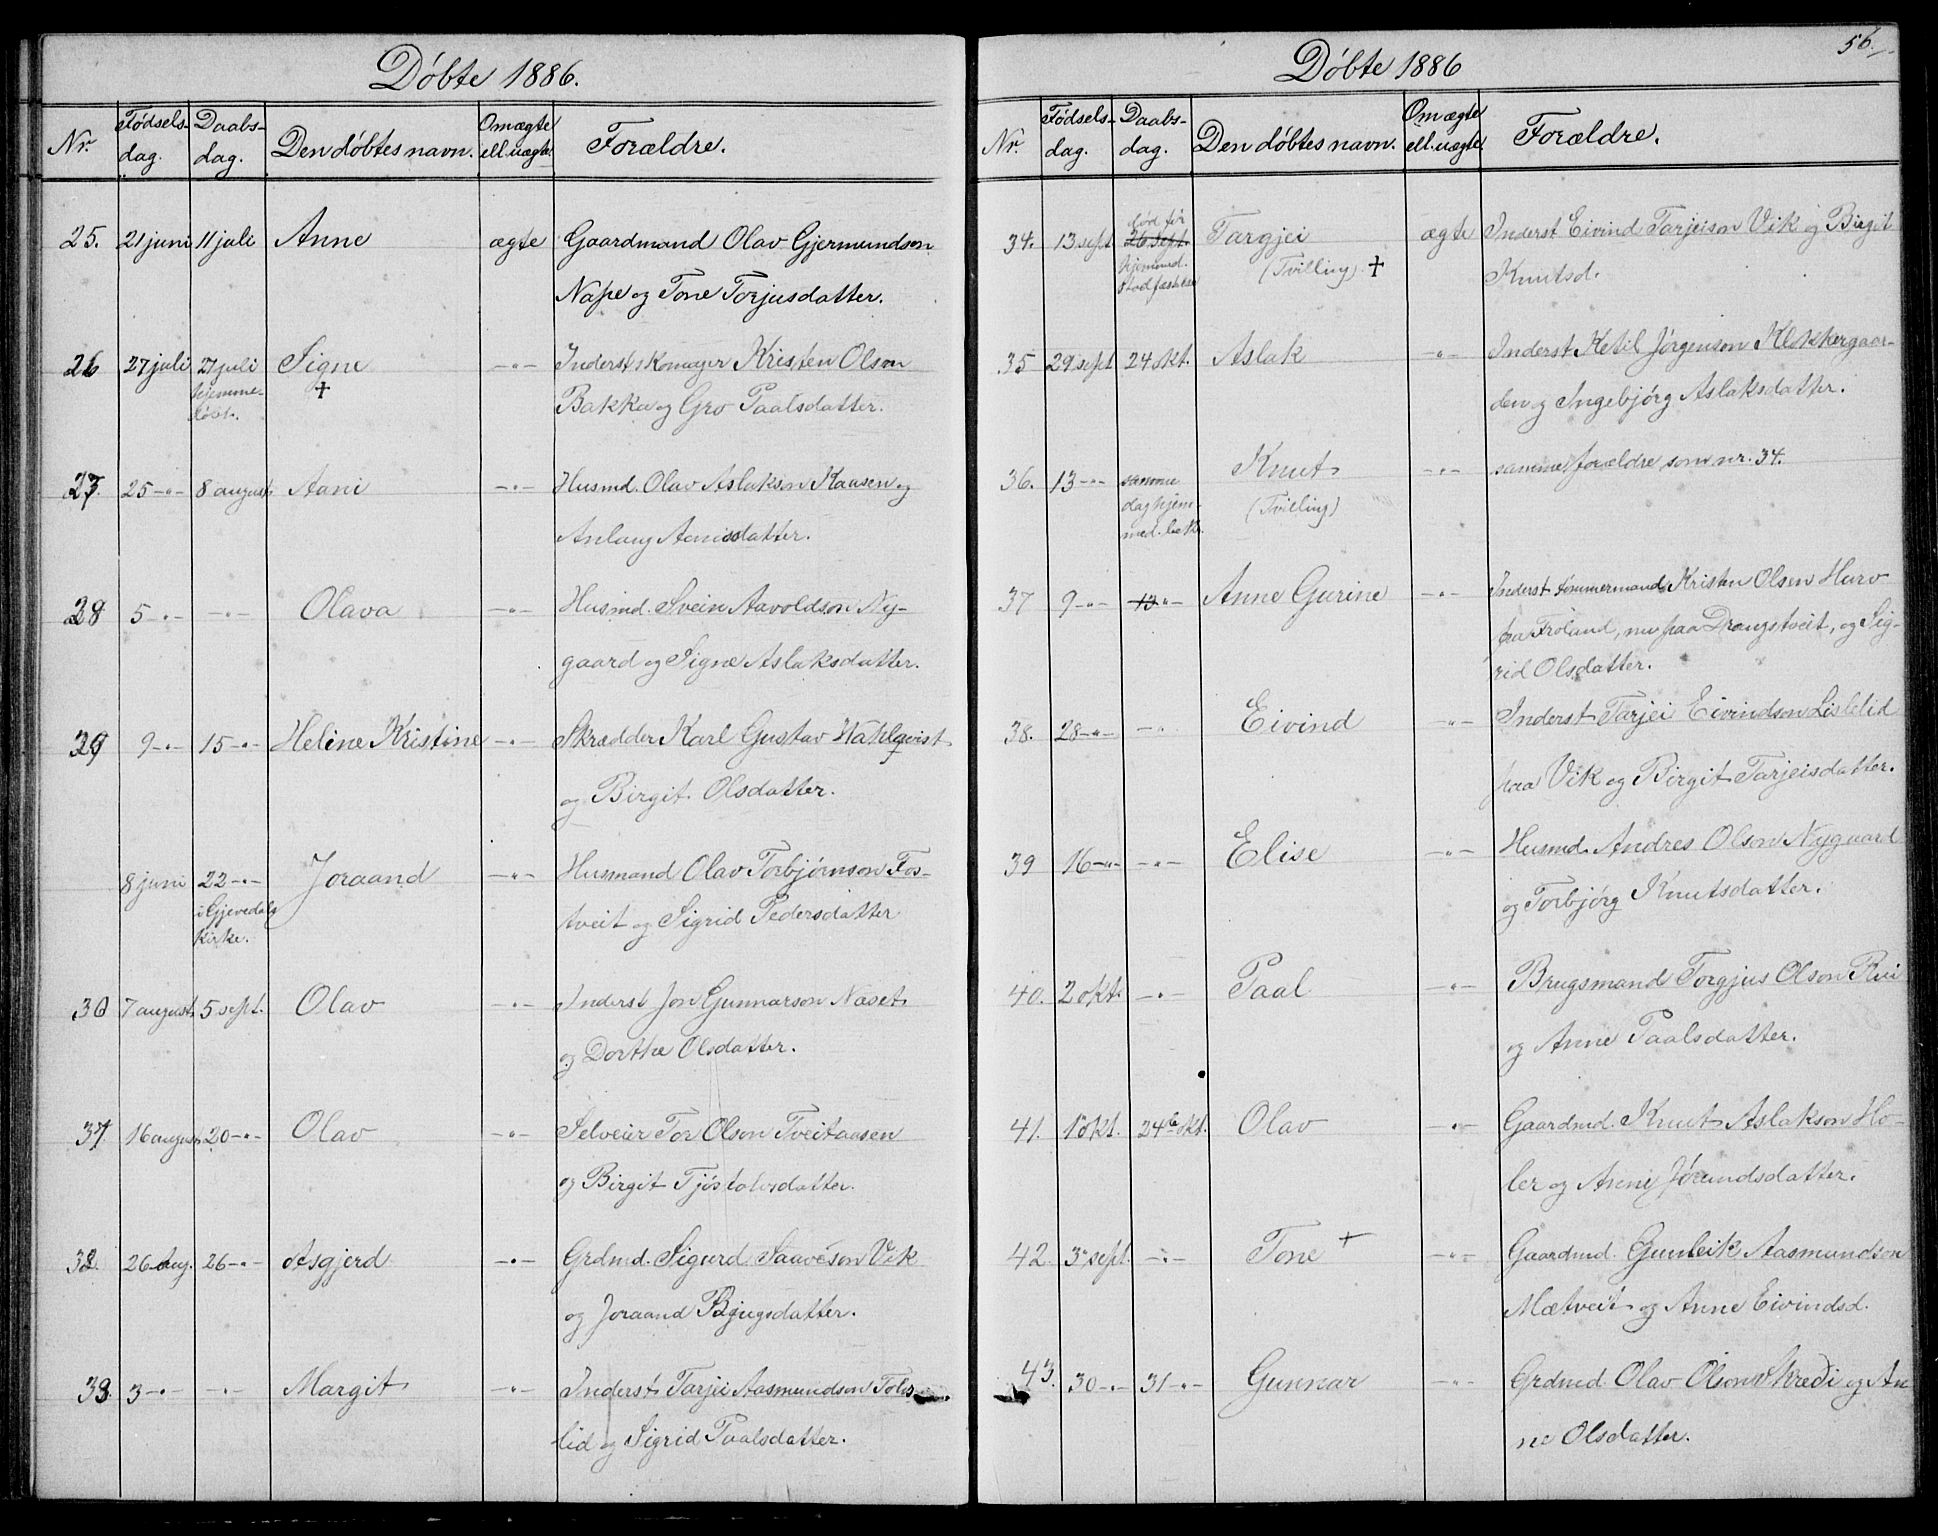 Døbte 1886.
Nr. Fødsels- dag. Daabs- dag. Den døbtes navn. Om ægte ell. uægte Forældre.
25. 21 juni 11 juli Anne ægte Gaardmand Olav Gjermundson
Nape og Tone Torjusdatter.
26 27 juli 27 juli Signe -"- Inderst, skomager Kristen Olson
hjemme- † Bakka og Gro Paalsdatter.
døbt.
27. 25 -"- 8 august Aani -"- Husmd. Olav Aslakson Kaasen og
Anlaug Aanisdatter.
28 5 -"- -"- Olava -"- Husmd. Svein Aavoldson Ny-
gaard og Signe Aslaksdatter.
29 9 -"- 15 -"- Heline Kristine -"- Skrædder Karl Gustav Wahlqvist
og Birgit Olsdatter.
8 juni 22 -"- Joraand -"- Husmand Olav Torbjørnson Fos-
i Gjevedals tveit og Sigrid Pedersdatter
kirke.
30 7 august 5 sept. Olav -"- Inderst Jon Gunnarson Næset
og Dorthe Olsdatter.
31 16 august 20 -"- Olav -"- Selveier Tor Olson Tveitaasen
og Birgit Tjøstolvsdatter.
32. 26 Aug. 26 -"- Asgjerd -"- Grdmd. Sigurd Saaveson Vik
og Joraand Bjugsdatter.
33. 3 -"- -"- Margit -"- Inderst Tarjei Aasmundson Tols
lid og Sigrid Paalsdatter.
Døbte 1886
56.
Nr. Fødsels- dag. Daabs- dag. Den døbtes navn. Om ægte ell. uægte Forældre.
død før
34. 13 sept 26 sept. Targjei ægte Inderst Eivind Tarjeison Vik og Birgit
hjemmed. (Tvilling) † Knutsd.
stadfæstelse
35 29 sept 24 okt. Aslak -"- Inderst Ketil Jørgenson Klokkergaar-
den og Ingebjørg Aslaksdatter.
36. 13 -"- samme Knut -"- samme forældre som nr. 34.
dag hjem- (Tvilling)
med. bek.
37 9 -"- 13 -"- Anne Gurine -"- Inderst tømmermand Kristen Olsen Hurv
fra Froland, nu paa Drangstveit, og Sig-
rid Olsdatter.
38. 28 -"- -"- Eivind -"- Inderst Tarjei Eivindson Lislelid
paa Vik og Birgit Tarjeisdatter.
39 16 -"- -"- Elise -"- Husmd. Andres Olson Nygaard
og Torbjørg Knutsdatter.
40. 2 okt. -"- Paal -"- Brugsmand Torgjus Olson Rui
og Anne Paalsdatter.
41. 1 okt. 24de okt. Olav -"- Gaardmd. Knut Aslakson Ho-
ler og Anne Jørundsdatter.
42. 3 sept. -"- Tone + -"- Gaardmd. Gunleik Aasmundson
Mætveit og Anne Eivindsd.
43. 30 -"- 31 -"- Gunnar -"- Grdmd. Olav Olson Skredi og An
ne Olsdatter.